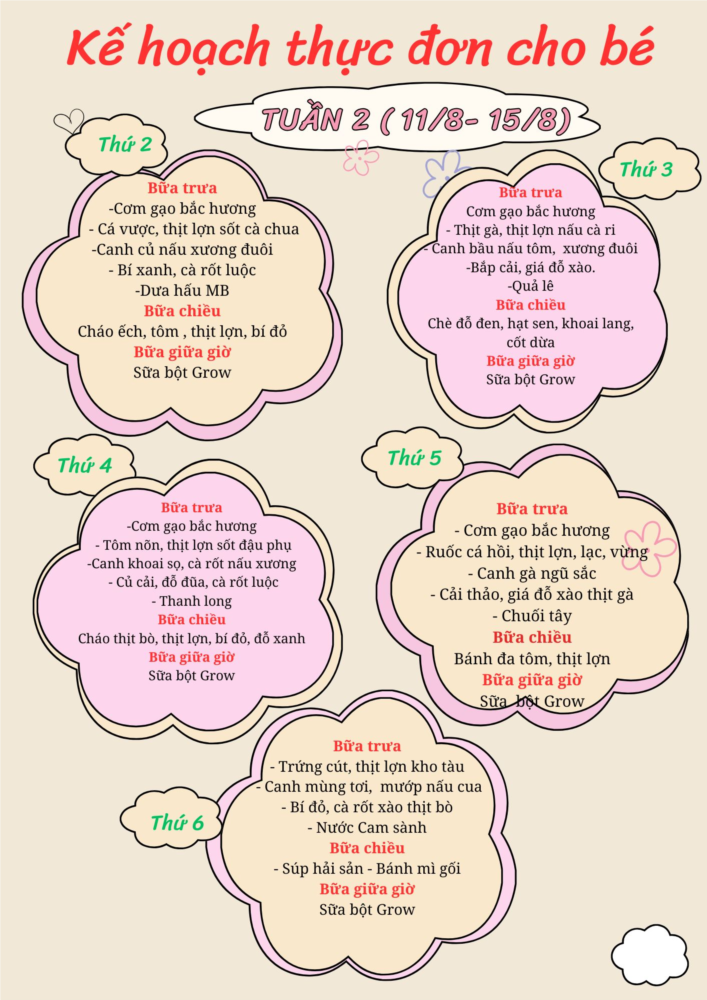 Kế hoạch thực đơn cho bé
TUẦN 2 ( 11/8- 15/8)
Thứ 2
Bữa trưa
-Cơm gạo bắc hương
- Cá vược, thịt lợn sốt cà chua
-Canh củ nấu xương đuôi
- Bí xanh, cà rốt luộc
-Dưa hấu MB
Bữa chiều
Cháo ếch, tôm , thịt lợn, bí đỏ
Bữa giữa giờ
Sữa bột Grow
Thứ 3
Bữa trưa
Cơm gạo bắc hương
- Thịt gà, thịt lợn nấu cà ri
- Canh bầu nấu tôm, xương đuôi
-Bắp cải, giá đỗ xào.
-Quả lê
Bữa chiều
Chè đỗ đen, hạt sen, khoai lang,
cốt dừa
Bữa giữa giờ
Sữa bột Grow
Thứ 4
Bữa trưa
-Cơm gạo bắc hương
- Tôm nõn, thịt lợn sốt đậu phụ
-Canh khoai sọ, cà rốt nấu xương
- Củ cải, đỗ đũa, cà rốt luộc
- Thanh long
Bữa chiều
Cháo thịt bò, thịt lợn, bí đỏ, đỗ xanh
Bữa giữa giờ
Sữa bột Grow
Thứ 5
Bữa trưa
- Cơm gạo bắc hương
- Ruốc cá hồi, thịt lợn, lạc, vừng
- Canh gà ngũ sắc
- Cải thảo, giá đỗ xào thịt gà
- Chuối tây
Bữa chiều
Bánh đa tôm, thịt lợn
Bữa giữa giờ
Sữa bột Grow
Thứ 6
Bữa trưa
- Trứng cút, thịt lợn kho tàu
- Canh mùng tơi, mướp nấu cua
- Bí đỏ, cà rốt xào thịt bò
- Nước Cam sành
Bữa chiều
- Súp hải sản - Bánh mì gối
Bữa giữa giờ
Sữa bột Grow